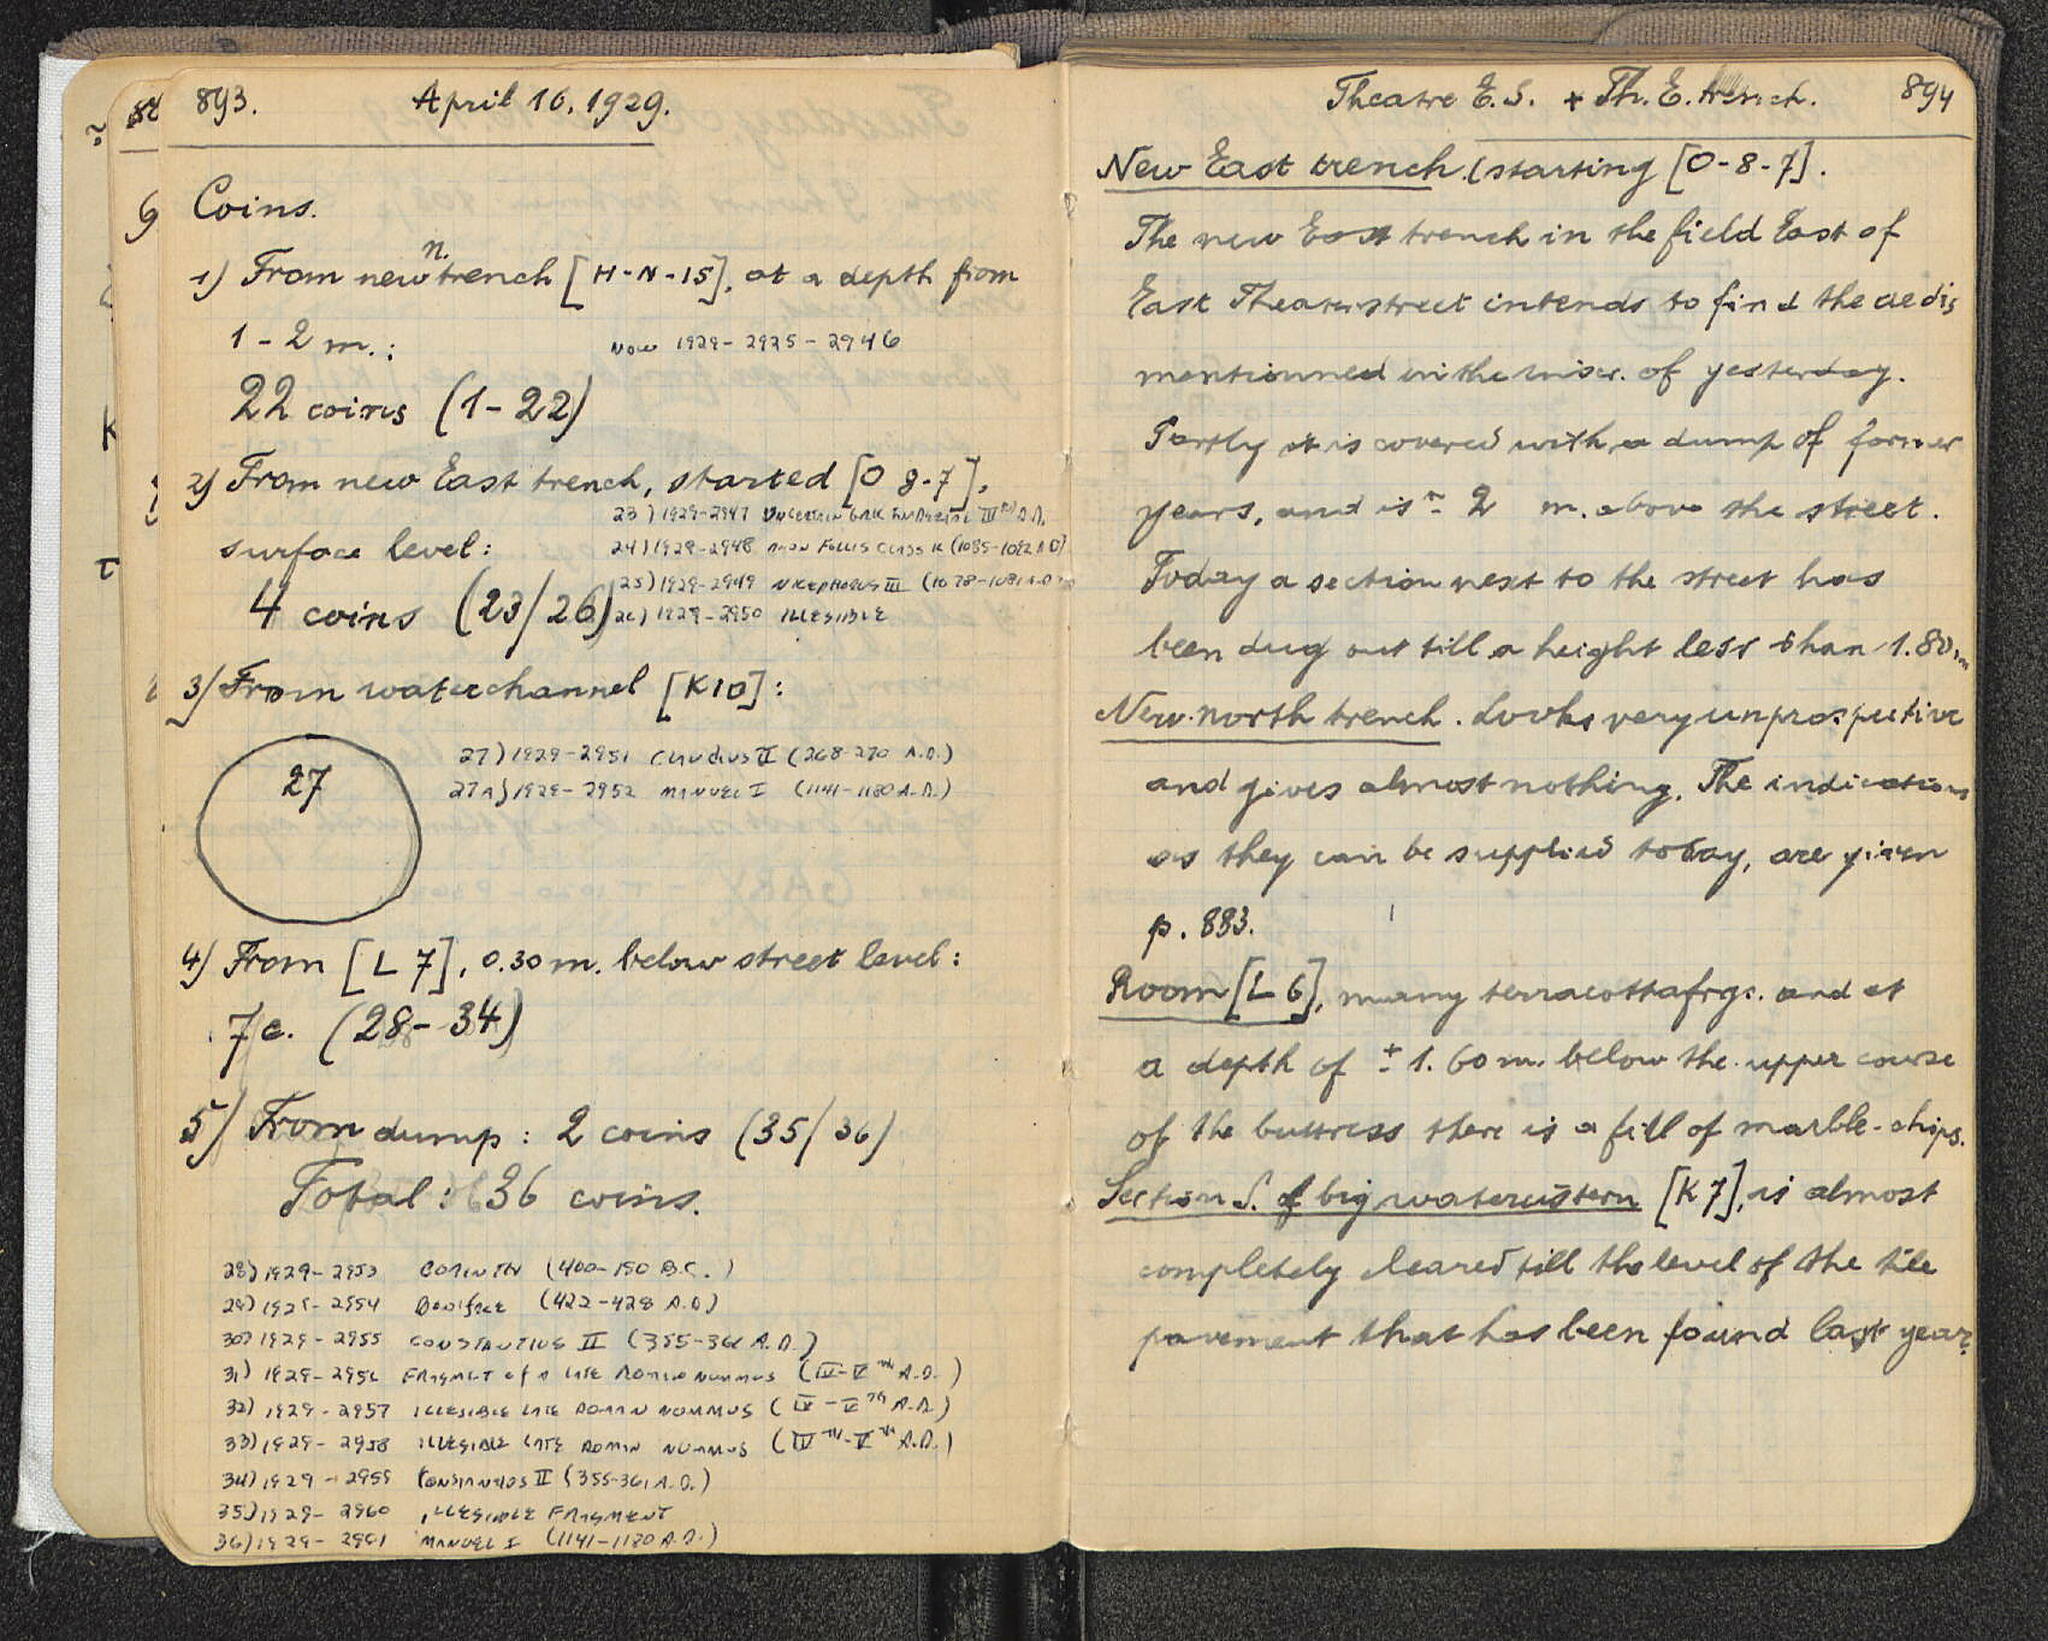 893. April 16, 1929.
Coins.
n.
1) From new trench [H-N-15], at a depth from
1-2 m.: now 1929-2925-2946
22 coins (1-22)
2) From new East trench, started [O 8-7],
23) 1929-2947 Uncertain GRK IMPERIAL III RD A.D.
surface level:
24) 1929-2948 Anon Follis Class K (1085-1092 A.D)
25) 1929-2949 Nicephorus III (1078-1081 A.D.)
4 coins (23/26) 26) 1929-2950 ILLEGIBLE
3) From waterchannel [K10]:
27
27) 1929-2951 Claudius II (268-270 A.D.)
27A) 1929-2952 MANUEL I (1141-1180 A.D.)
4) From [L 7], 0.30 m. below street level:
7 c. (28-34)
5) From dump: 2 coins (35/36)
Total: 36 coins.
28) 1929-2953 CORINTH (400-150 B.C.)
29) 1929-2954 Boniface (422-428 A.D)
30) 1929-2955 CONSTANTIUS II (355-361 A.D.)
31) 1929-2956 FRAGMET of A LATE ROMAN NUMMUS (IV-V TH A.D.)
32) 1929-2957 ILLEGIBLE LATE ROMAN NUMMUS (IV-V TH A.D.)
33) 1929-2958 ILLEGIBLE LATE ROMAN NUMMUS (IV TH-V TH A.D.)
34) 1929-2959 Constantius II (355-361 A.D.)
35) 1929-2960 ILLEGIBLE FRAGMENT
36) 1929-2961 MANUEL I (1141-1180 A.D.)
Theatre E.S. + Th. E. trench. 894
New East trench (starting [O-8-7].
The new East trench in the field East of
East Theaterstreet intends to find the aedis
mentionned in the inscr. of yesterday.
Partly it is covered with a dump of former
years, and is ~ 2 m. above the street.
Today a section next to the street has
been dug out till a height less than 1.80 m
New north trench. Looks very unprospective
and gives almost nothing. The indications
as they can be supplied today, are given
p. 883.
Room [L 6], many terracottafrgs. and at
a depth of ± 1.60 m. below the upper course
of the buttress there is a fill of marble-chips.
Section S. of big watercistern [K 7], is almost
completely cleared till the level of the tile
pavement that has been found last year.